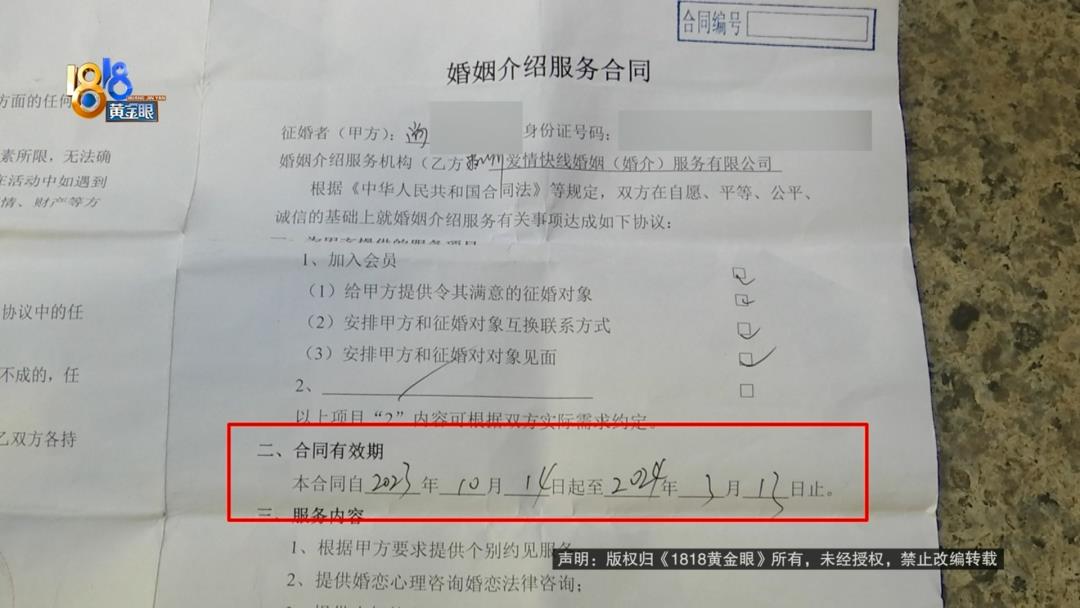 合同编号
1818
黄金眼
婚姻介绍服务合同
方面的任何
素所限，无法确
在活动中如遇到
情、财产等方
协议中的任
不成的，任
乙双方各持
征婚者（甲方）： 身份证号码：
婚姻介绍服务机构（乙方 爱情快线婚姻（婚介）服务有限公司
根据《中华人民共和国合同法》等规定，双方在自愿、平等、公平、
诚信的基础上就婚姻介绍服务有关事项达成如下协议：
一、为甲方提供的服务项目
1、加入会员
（1）给甲方提供令其满意的征婚对象
（2）安排甲方和征婚对象互换联系方式
（3）安排甲方和征婚对对象见面
2、
以上项目“2”内容可根据双方实际需求约定。
二、合同有效期
本合同自2023年10月14日起至2024年3月13日止。
三、服务内容
1、根据甲方要求提供个别约见服务
2、提供婚恋心理咨询婚恋法律咨询；
声明：版权归《1818黄金眼》所有，未经授权，禁止改编转载